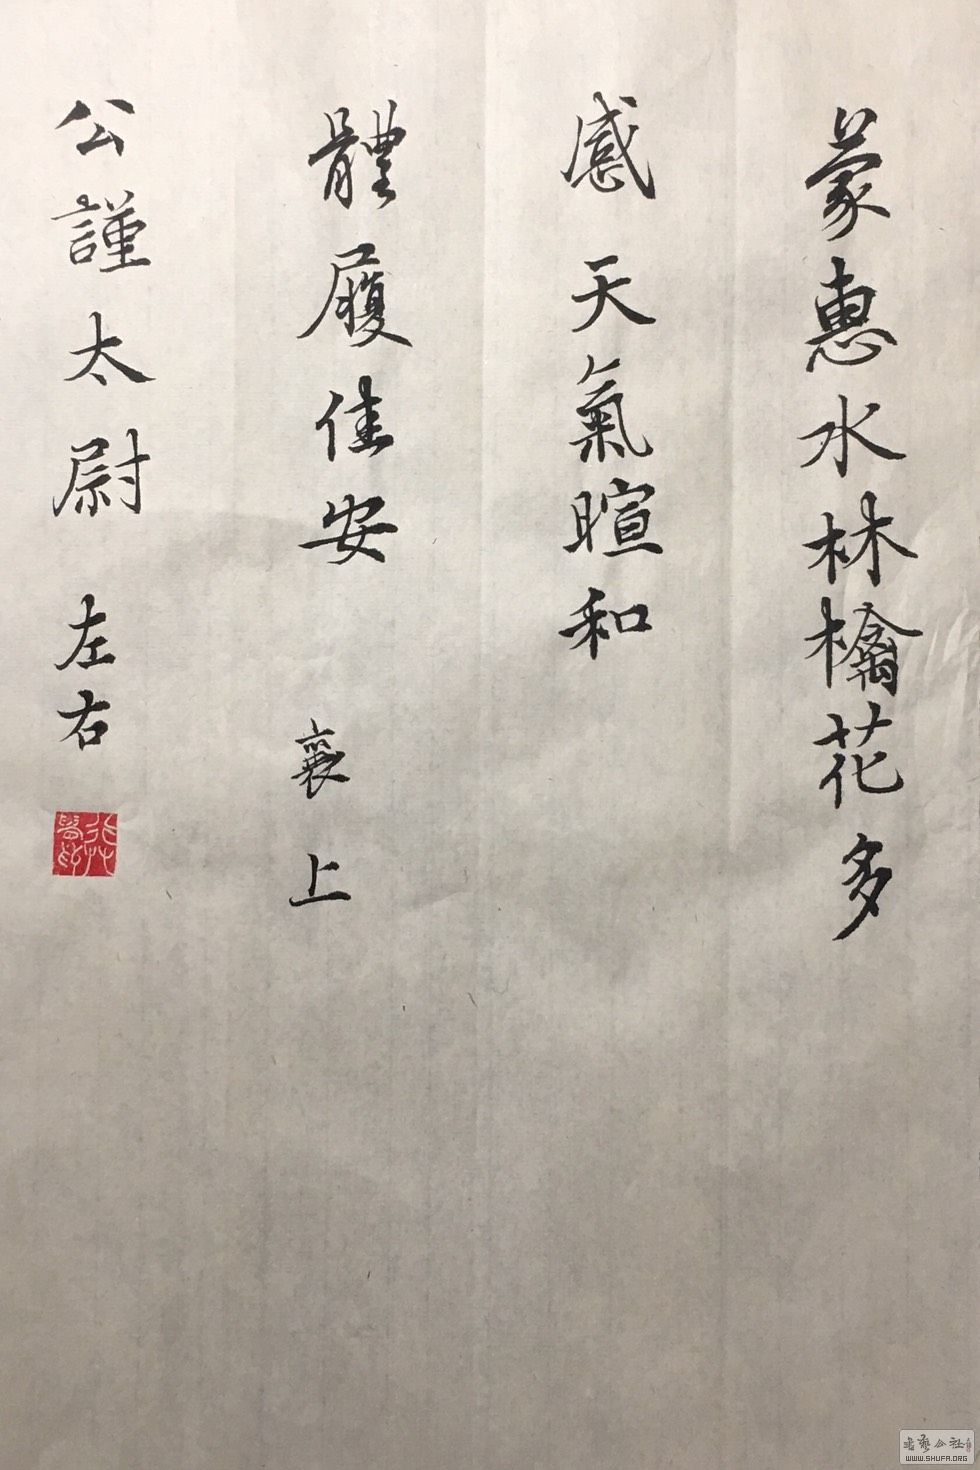 蒙惠水林檎花多
感天氣暄和
體履佳安 襄上
公謹太尉 左右
書藝公社
WWW.SHUFA.ORG